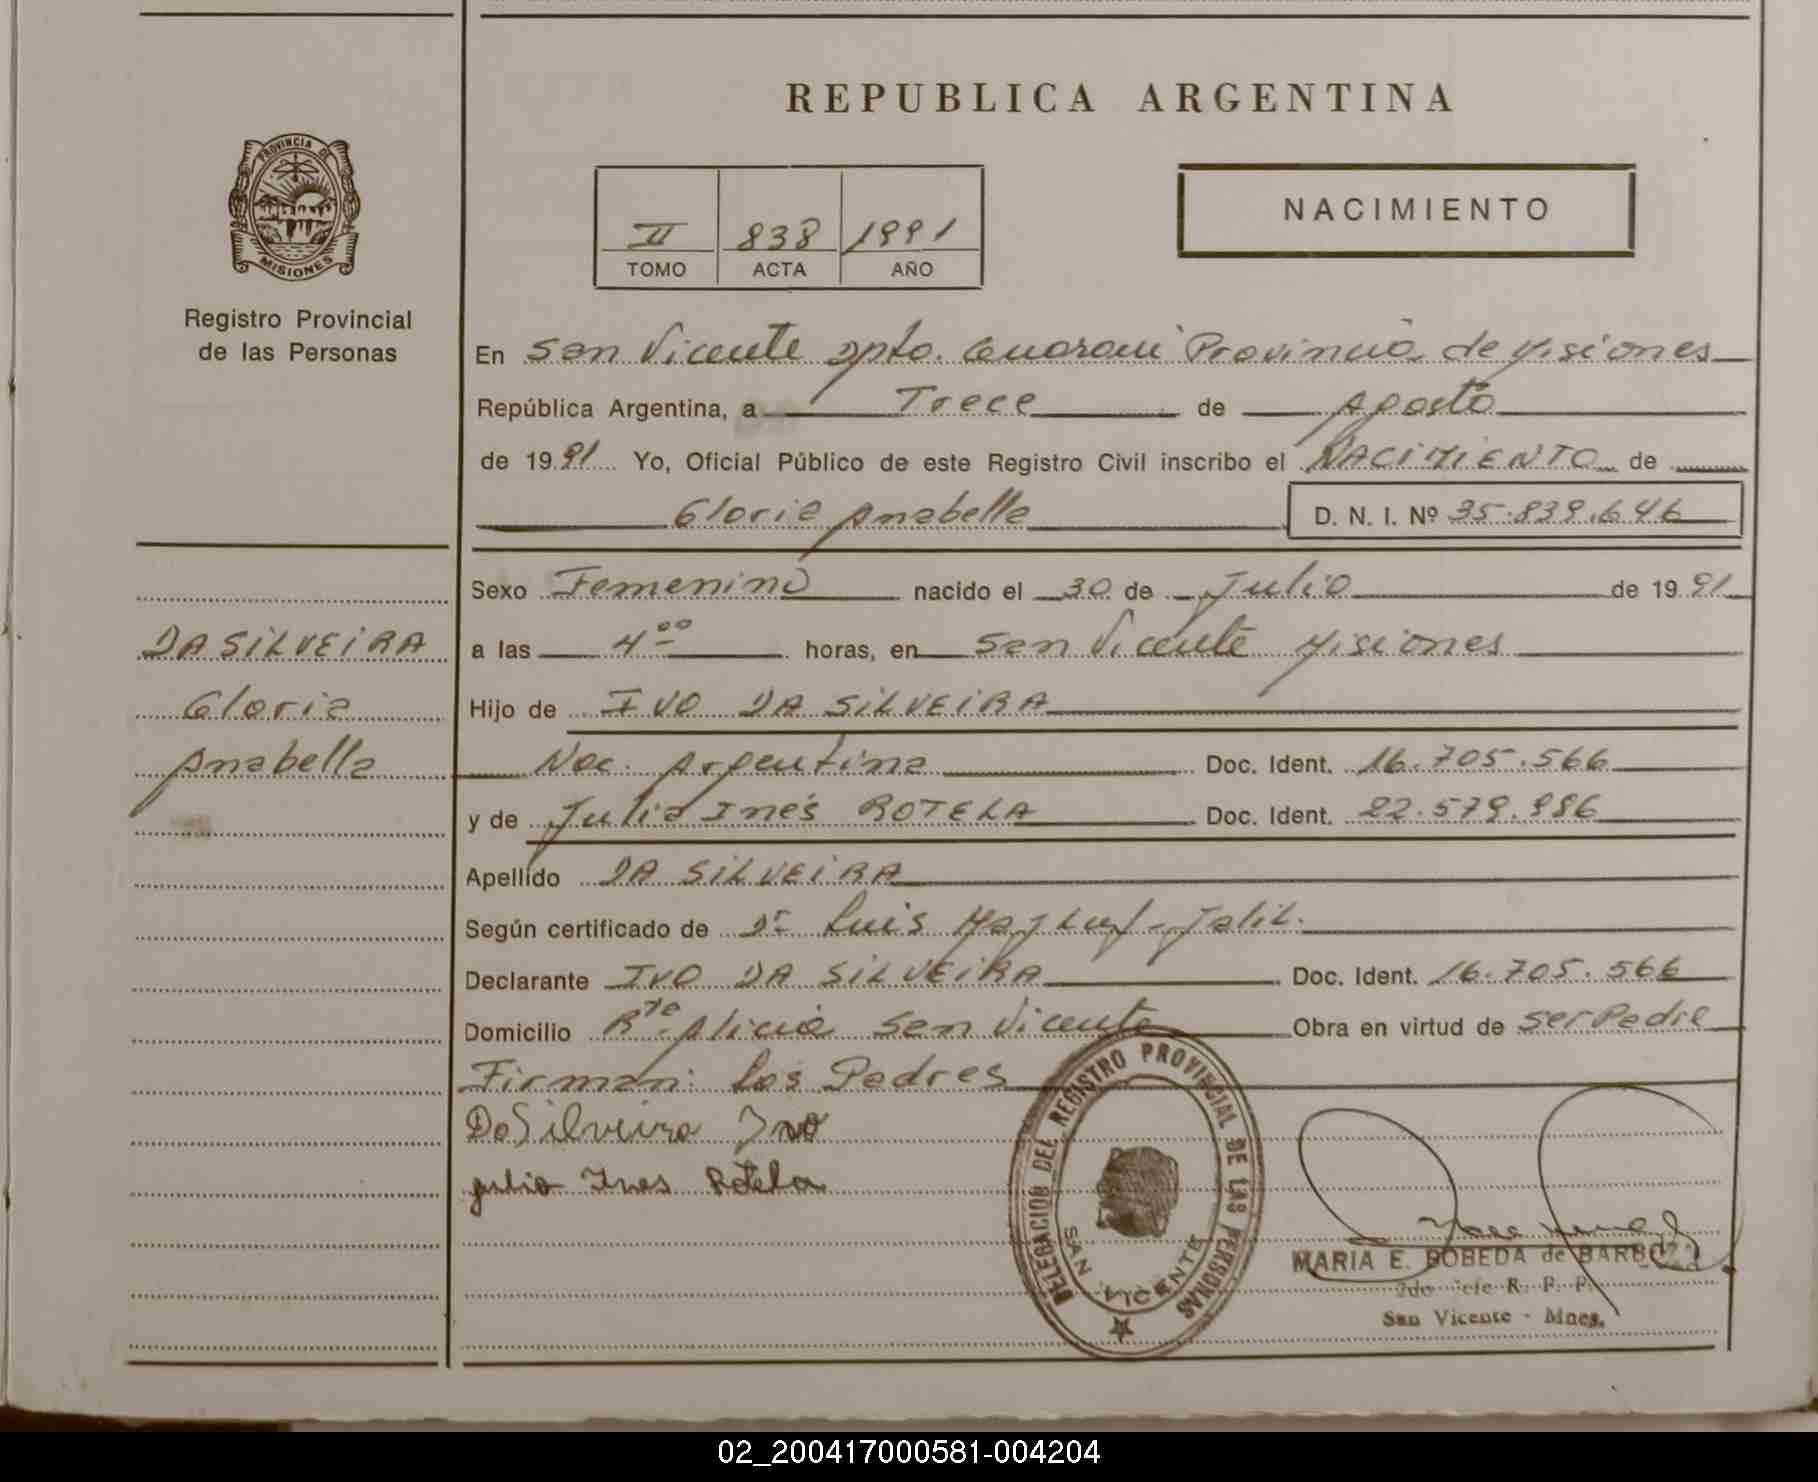 REPUBLICA ARGENTINA
PROVINCIA DE
MISIONES
Registro Provincial
de las Personas
II 838 1991
TOMO ACTA AÑO
NACIMIENTO
En San Vicente Dpto. Guarani Provincia de Misiones
República Argentina, a Trece de Agosto
de 1991 Yo, Oficial Público de este Registro Civil inscribo el NACIMIENTO de
Gloria Anabella D. N. I. Nº 35.839.646
Sexo Femenino nacido el 30 de Julio de 1991
DA SILVEIRA
Gloria
Anabella
a las 4°° horas, en San Vicente Misiones
Hijo de IVO DA SILVEIRA
Nac. Argentina Doc. Ident. 16.705.566
y de Julia Inés ROTELA Doc. Ident. 22.579.986
Apellido DA SILVEIRA
Según certificado de Dr Luis Jalil.
Declarante IVO DA SILVEIRA Doc. Ident. 16.705.566
Domicilio Rta Alicia San Vicente Obra en virtud de ser Padre
Firman: los Padres
Da Silveira Ivo
julia Ines Rotela
DELEGACION DEL REGISTRO PROVINCIAL DE LAS PERSONAS
SAN VICENTE
MARIA E. BOBEDA de BARBOZA
2do R. P. P.
San Vicente - Mnes.
02_200417000581-004204